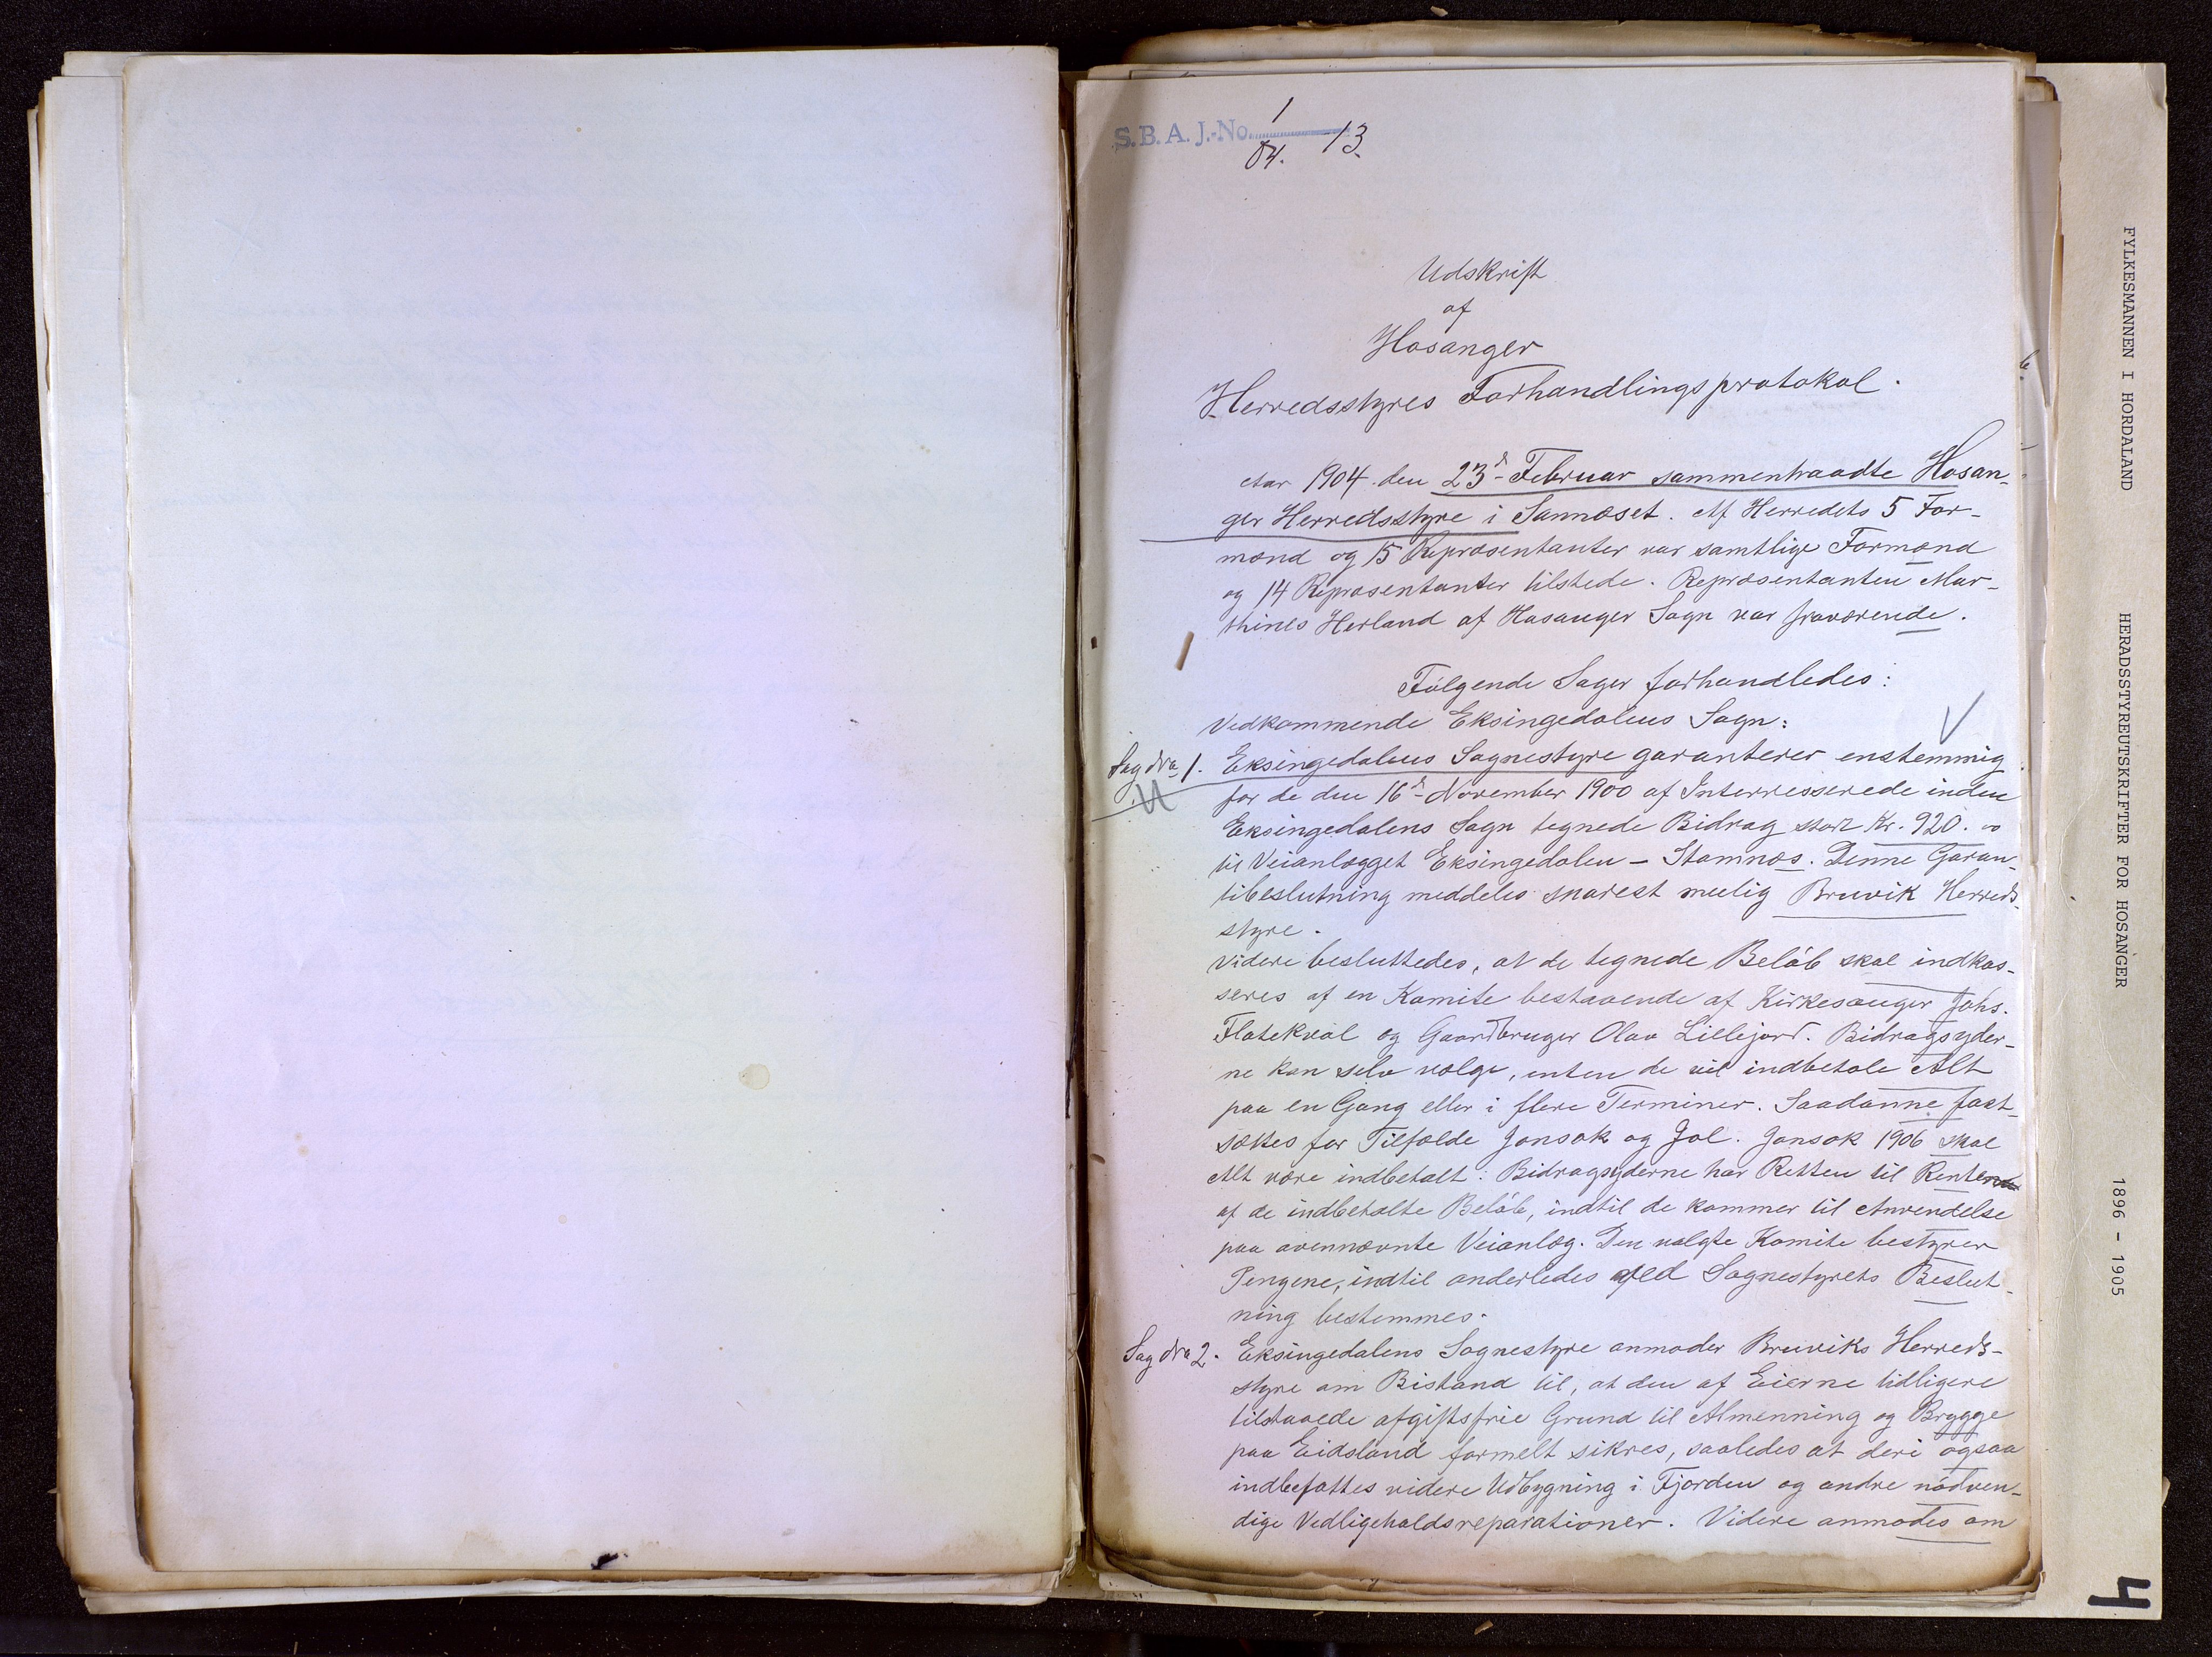 S.B.A. J.-No. 1/04. 13.
Udskrift
af
Hosanger
Herredsstyres Forhandlingsprotokol.
Aar 1904 den 23d- Februar sammentraadte Hosan-
ger Herredsstyre i Sannæset. Af Herredets 5 For-
mænd og 15 Repræsentanter var samtlige Formænd
og 14 Repræsentanter tilstede. Repræsentanten Mar-
thines Herland af Hosanger Sogn var fraværende.
Følgende Sager forhandledes:
Vedkommende Eksingedalens Sogn:
Sag No 1. Eksingedalens Sognestyre garanterer enstemmig
for de den 16d- November 1900 af Interresserede inden
Eksingedalens Sogn tegnede Bidrag stort Kr. 920.00
til Veianlægget Eksingedalen - Stamnæs. Denne Garan-
tibeslutning meddeles snarest muelig Bruvik Herreds-
styre.
Videre besluttedes, at de tegnede Beløb skal indkas-
seres af en Komite bestaaende af Kirkesanger Johs.
Flatekval og Gaardbruger Olav Lillejord. Bidragsyder-
ne kan selv vælge, enten de vil indbetale Alt
paa en Gang eller i flere Terminer. Saadanne fast-
sættes for Tilfælde Jonsok og Jol. Jonsok 1906 skal
Alt være indbetalt. Bidragsyderne har Retten til Renter
af de indbetalte Beløb, indtil de kommer til Anvendelse
paa ovennævnte Veianlæg. Den valgte Komite bestyrer
Pengene, indtil anderledes ved Sognestyrets Beslut-
ning bestemmes.
Sag No 2. Eksingedalens Sognestyre anmoder Bruviks Herreds-
styre om Bistand til, at den af Eierne tidligere
tilstaaede afgiftsfrie Grund til Almenning og Brygge
paa Eidsland formelt sikres, saaledes at deri ogsaa
indbefattes videre Udbygning i Fjorden og andre nødven-
dige Vedligeholdsreparationer. Videre anmodes om
FYLKESMANNEN I HORDALAND HERADSSTYREUTSKRIFTER FOR HOSANGER 1896 - 1905
4